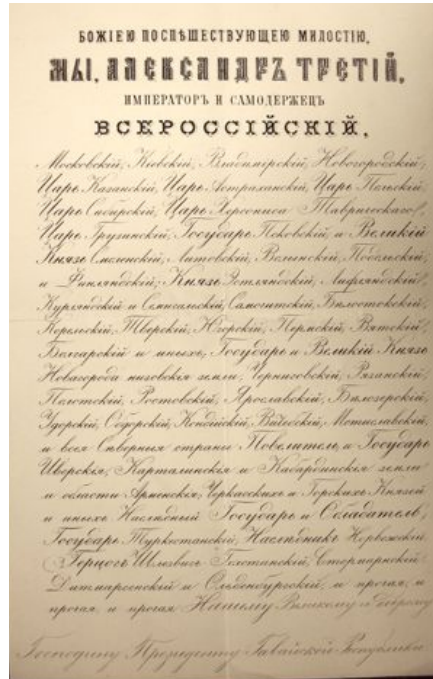 БОЖІЕЮ ПОСПѢШЕСТВУЮЩЕЮ МИЛОСТІЮ,
МЫ, АЛЕКСАНДРЪ ТРЕТІЙ,
ИМПЕРАТОРЪ И САМОДЕРЖЕЦЪ
ВСЕРОССІЙСКІЙ,
Московскій, Кіевскій, Владимірскій, Новогородскій,
Царь Казанскій, Царь Астраханскій, Царь Польскій,
Царь Сибирскій, Царь Херсониса Таврическаго,
Царь Грузинскій, Государь Псковскій, и Великій
Князь Смоленскій, Литовскій, Волынскій, Подольскій
и Финляндскій, Князь Эстляндскій, Лифляндскій,
Курляндскій и Семигальскій, Самогитскій, Бѣлостокскій,
Корельскій, Тверскій, Югорскій, Пермскій, Вятскій,
Болгарскій и иныхъ; Государь и Великій Князь
Новагорода низовскія земли, Черниговскій, Рязанскій,
Полотскій, Ростовскій, Ярославскій, Бѣлозерскій,
Удорскій, Обдорскій, Кондійскій, Витебскій, Мстиславскій
и всея Сѣверныя страны Повелитель, и Государь
Иверскія, Карталинскія и Кабардинскія земли
и области Арменскія; Черкасскихъ и Горскихъ Князей
и иныхъ Наслѣдный Государь и Обладатель,
Государь Туркестанскій, Наслѣдникъ Норвежскій
Герцогъ Шлезвигъ Голстинскій, Стормарнскій
Дитмарсенскій и Ольденбургскій, и прочая, и
прочая, и прочая Нашему Великому и Доброму
Господину Президенту Гавайской Республики